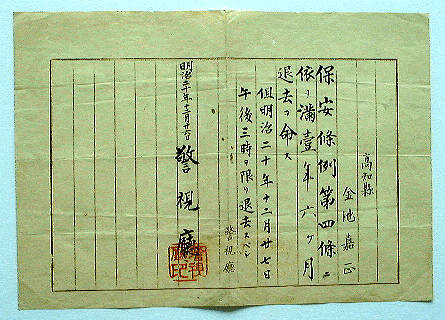 高知縣
金池嘉一
保安條例第四條ニ
依リ滿壹年六ヶ月
退去ヲ命ス
但明治二十年十二月廿七日
午後三時ヲ限リ退去スベシ
警視廳
明治二十年十二月廿六日
警視廳
警視廳印